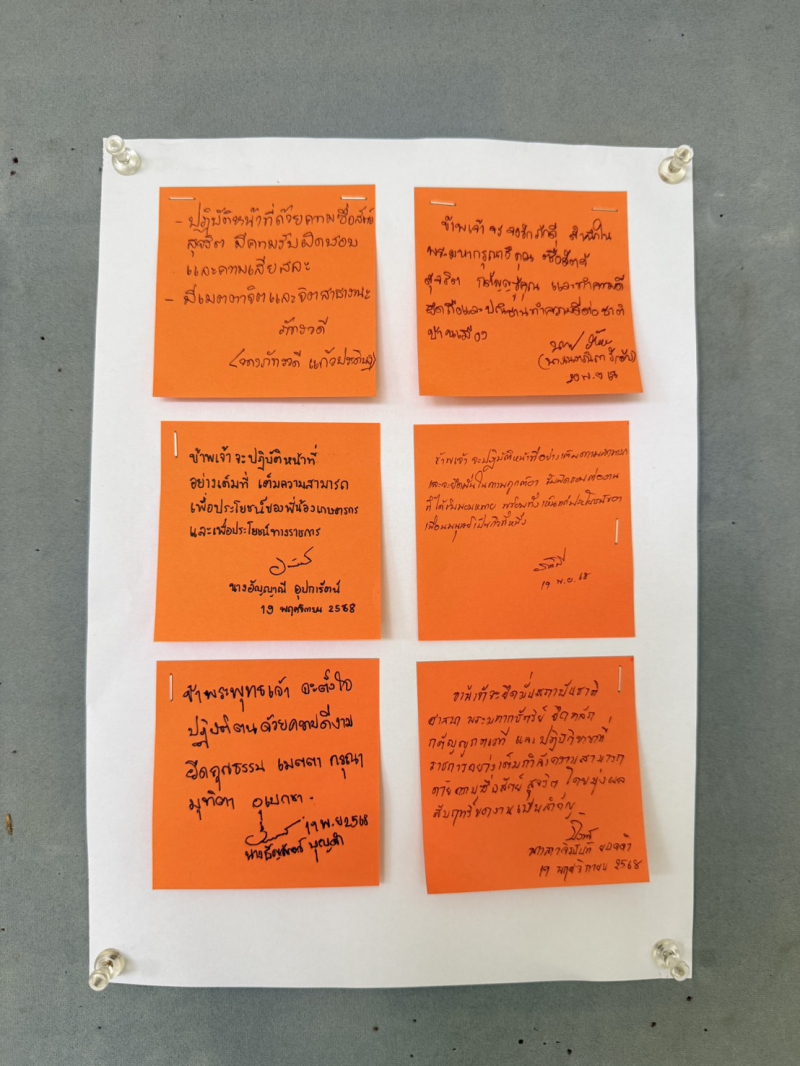 - ปฏิบัติหน้าที่ด้วยความซื่อสัตย์
สุจริต มีความรับผิดชอบ
และความเสียสละ
- มีเมตตาจิตและจิตสาธารณะ
ภัทราวดี
แก้วประดิษฐ์)
ข้าพเจ้า จะจงรักภักดี สำนึกใน
พระมหากรุณาธิคุณ ซื่อสัตย์
สุจริต กตัญญูรู้คุณ และทำความดี
ยึดถือและปณิธานทำความดีต่อชาติ
บ้านเมือง
ข้าพเจ้า จะปฏิบัติหน้าที่
อย่างเต็มที่ เต็มความสามารถ
เพื่อประโยชน์ของพี่น้องเกษตรกร
และเพื่อประโยชน์ทางราชการ
นางอัญญาณี อุปการัตน์
19 พฤศจิกายน 2568
ข้าพเจ้า จะปฏิบัติหน้าที่อย่างเต็มความสามารถ
และจะยึดมั่นในความถูกต้อง รับผิดชอบต่องาน
ที่ได้รับมอบหมาย พร้อมทั้งเห็นแก่ประโยชน์ของ
เพื่อนมนุษย์เป็นกิจที่หนึ่ง
19 พ.ย. 68
ข้าพระพุทธเจ้า จะตั้งใจ
ปฏิบัติตนด้วยความดีงาม
ยึดคุณธรรม เมตตา กรุณา
มุทิตา อุเบกขา.
19 พ.ย 2568
บุญดำ
ข้าพเจ้าจะยึดมั่นสถาบันชาติ
ศาสนา พระมหากษัตริย์ ยึดหลัก
กตัญญูกตเวที และปฏิบัติหน้าที่
ราชการอย่างเต็มกำลังความสามารถ
ด้วยความซื่อสัตย์ สุจริต โดยมุ่งผล
สัมฤทธิ์ของงานเป็นสำคัญ
19 พฤศจิกายน 2568